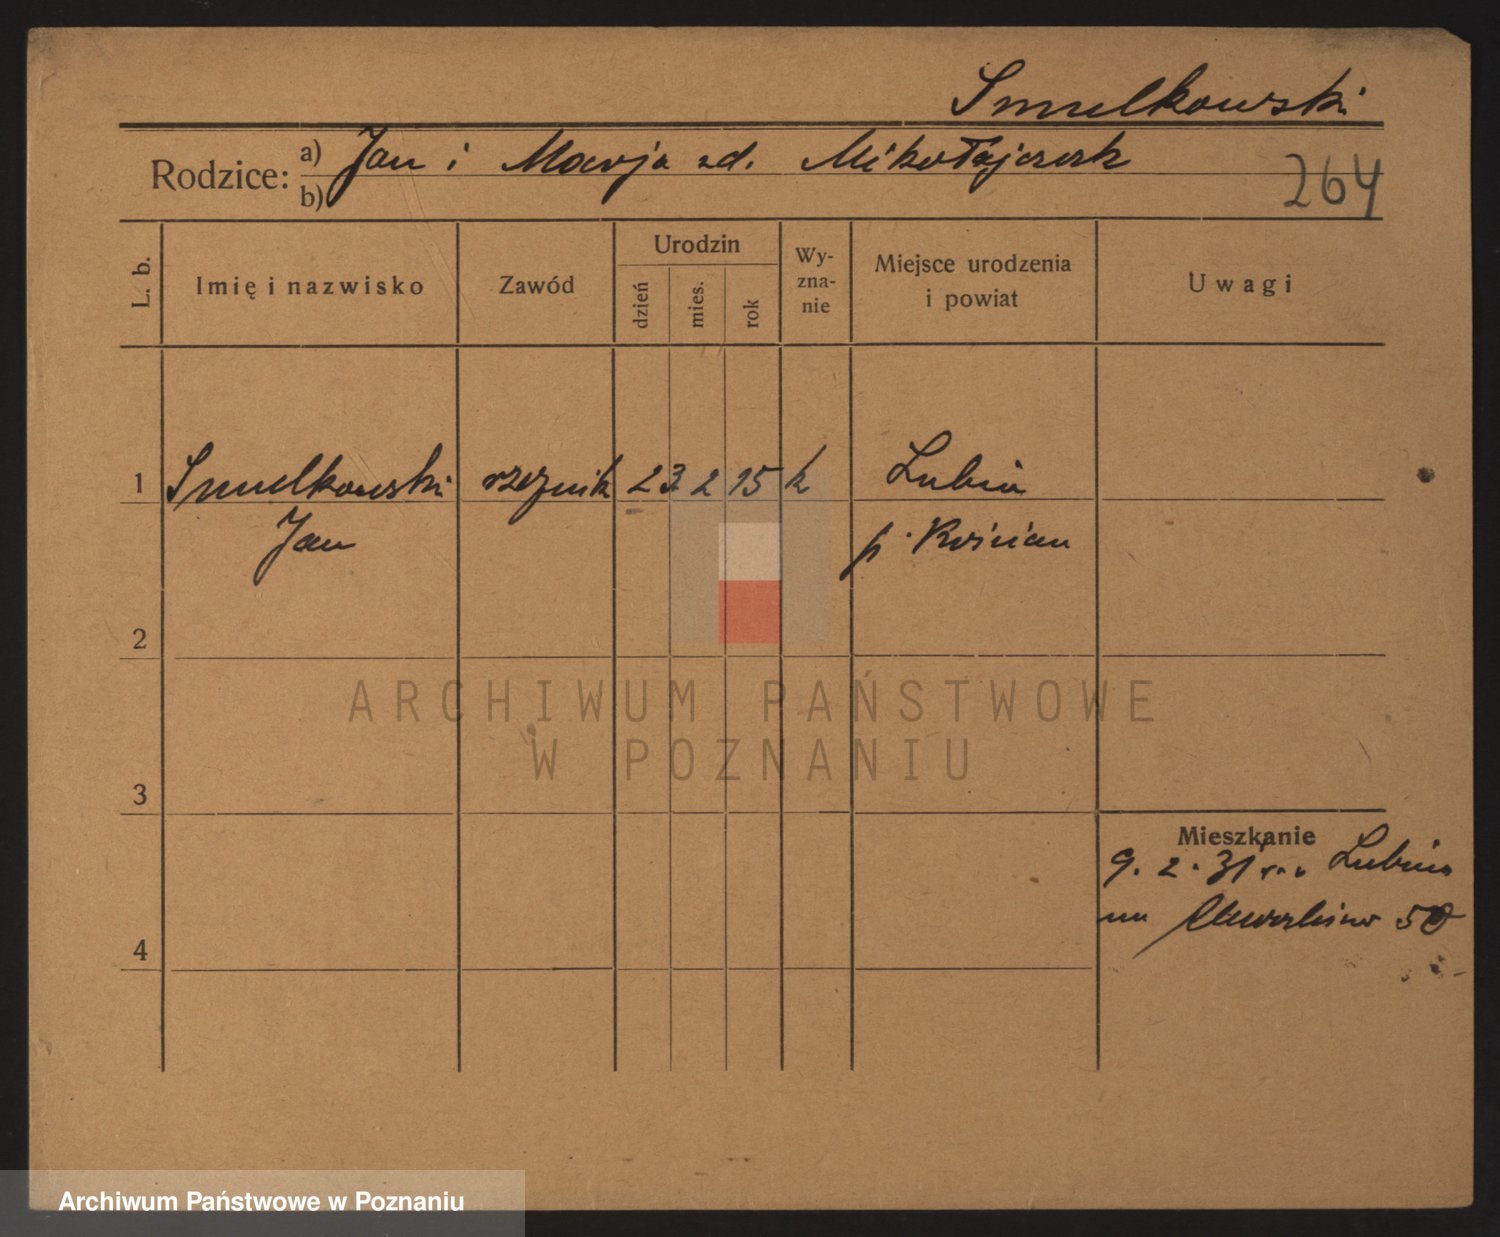 Smulkowski
Rodzice: a) Jan i Marja zd. Mikołajczak
b)
264
L. b. Imię i nazwisko Zawód Urodzin dzień mies. rok Wyznanie Miejsce urodzenia i powiat Uwagi
1 Smulkowski rzeźnik 23 2 15 k Lubiń
Jan p. Kościan
2
ARCHIWUM PAŃSTWOWE
W POZNANIU
3
Mieszkanie
9. 2. 31 Lubiń
na 50
4
Archiwum Państwowe w Poznaniu